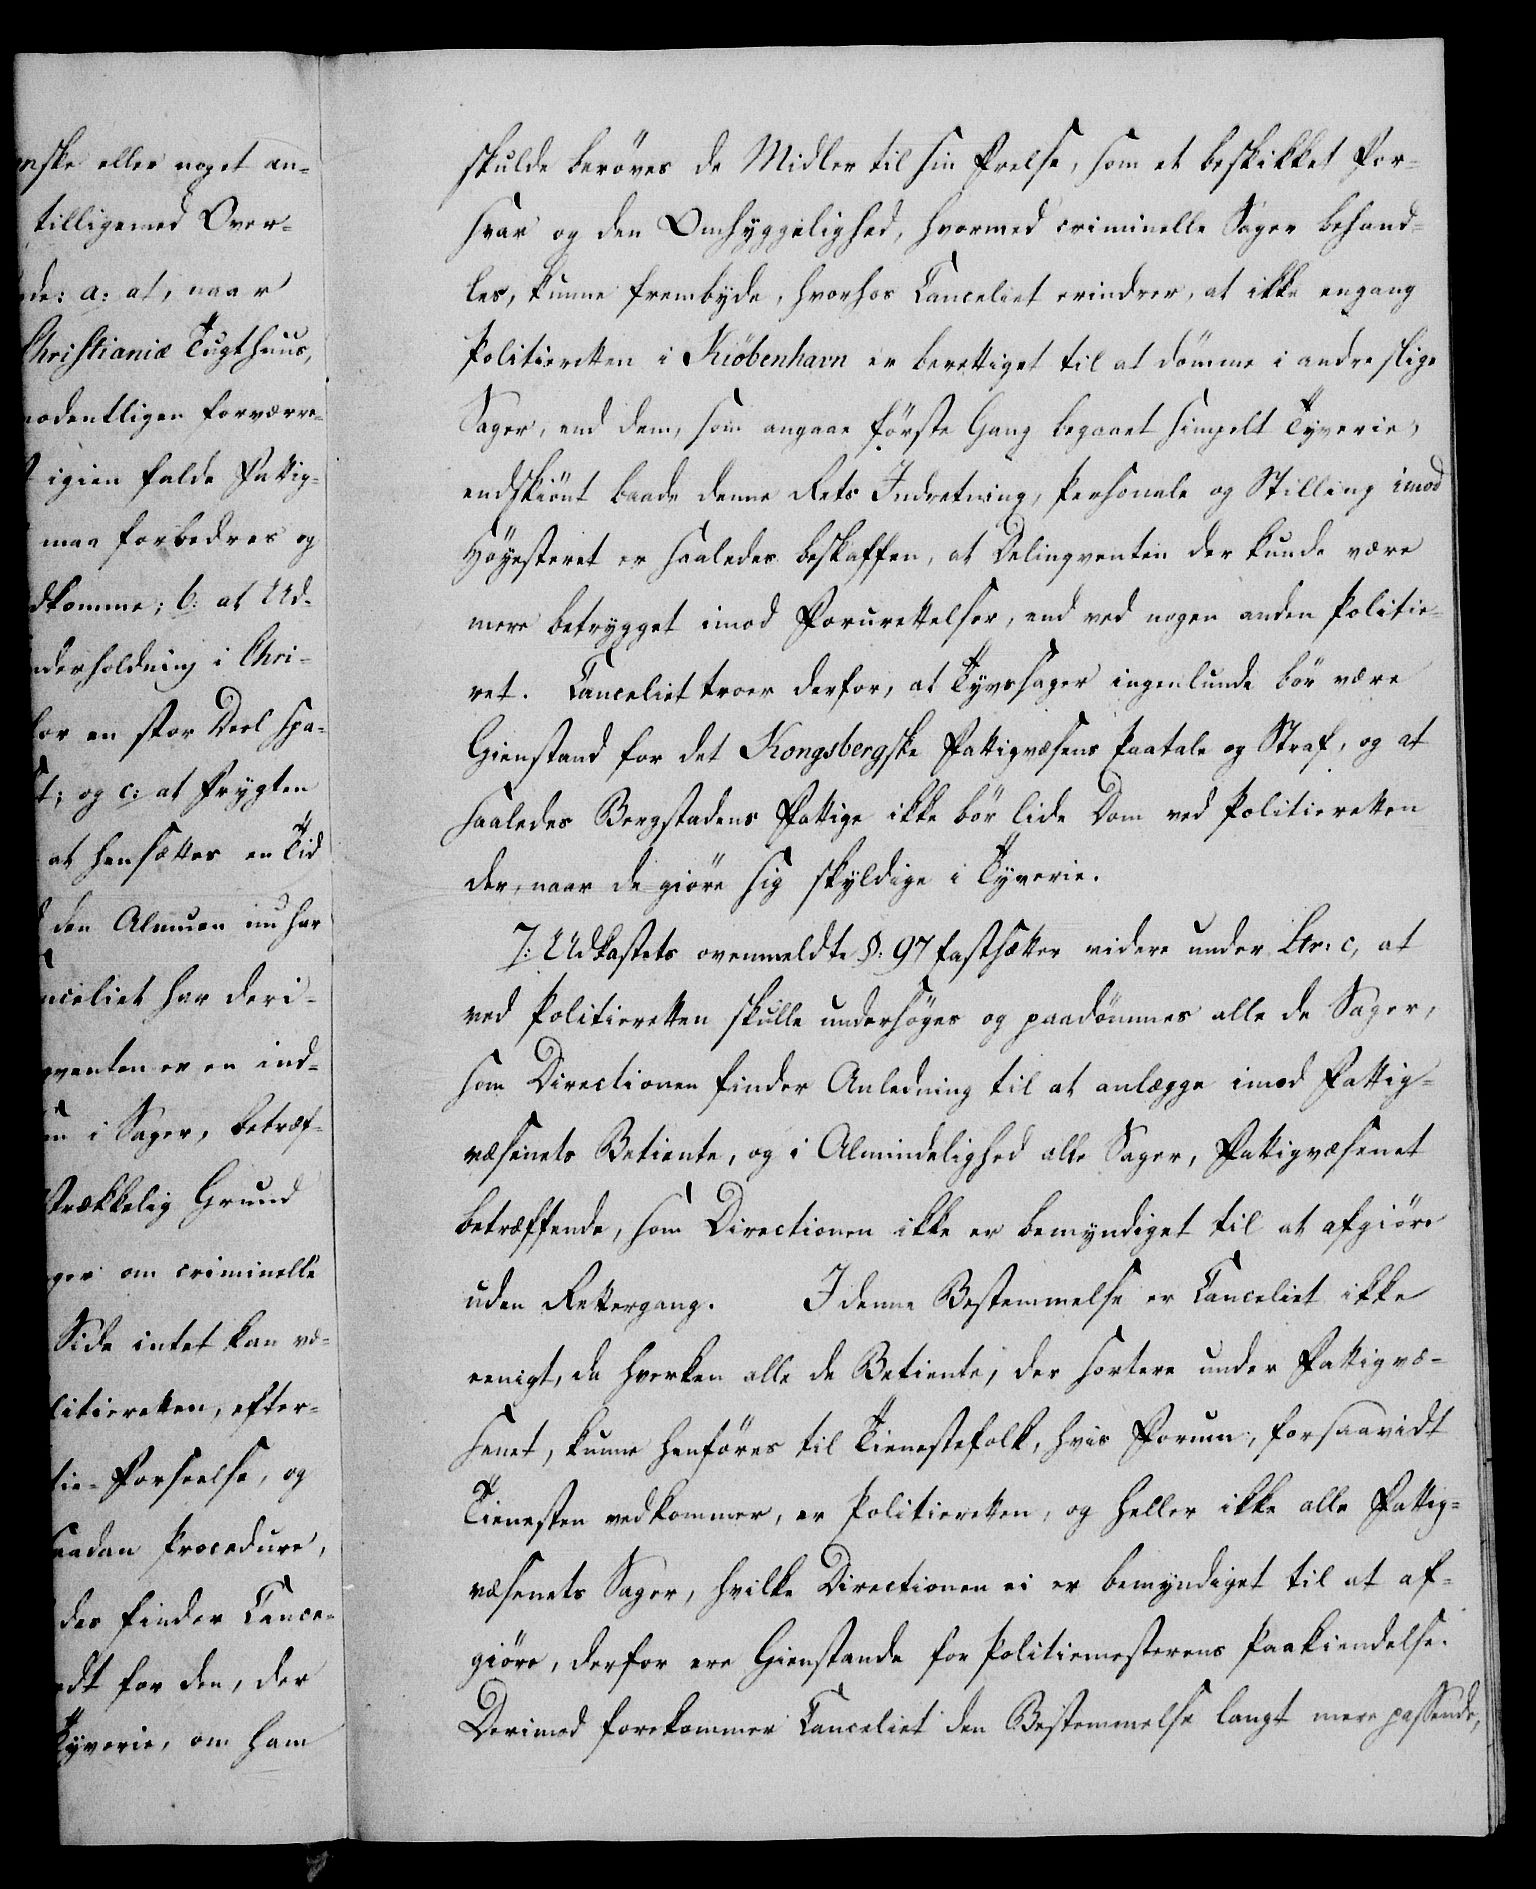 nske eller noget an-
tilligemed Over-
de: a: at, naar
Christianiæ Tugthuus,
nodentligen forværre-
igien falde Fattig-
maa forbedres og
dkomme; b: at Ud-
nderholdning i Chri-
for en stor Deel spa-
t; og c: at Frygten
at hensættes en Tid
den Almuen nu har
nceliet har deri-
qventen er en ind-
en i Sager, betræf-
strækkelig Grund
ger om criminelle
Side intet kan væ-
litieretten, efter-
tie-Forseelse, og
saadan Procedure,
des finder Cance-
edt for den, der
Tyverie, om ham
skulde berøves de Midler til sin Frelse, som et beskikket For-
svar og den Omhyggelighed, hvormed criminelle Sager behand-
les, kunne frembyde, hvorhos Canceliet erindrer, at ikke engang
Politieretten i Kiöbenhavn er berettiget til at dömme i andre slige
Sager, end dem, som angaae förste Gang begaaet simpelt Tyverie,
endskiönt baade denne Rets Indretning, Personale og Stilling imod
Höyesteret er saaledes beskaffen, at Delinqventen der kunde være
mere betrygget imod Forurettelser, end ved nogen anden Politie-
ret. Canceliet troer derfor, at Tyvssager ingenlunde bör være
Gienstand for det Kongsbergske Fattigvæsens Paatale og Straf, og at
saaledes Bergstadens Fattige ikke bör lide Dom ved Politieretten
der, naar de giöre sig skyldige i Tyverie.
7: Udkastets ovenmeldte §: 97 fastsætter videre under Litr: c, at
ved Politieretten skulle undersöges og paadömmes alle de Sager,
som Directionen finder Anledning til at anlægge imod Fattig-
væsenets Betiente, og i Almindelighed alle Sager, Fattigvæsenet
betræffende, som Directionen ikke er bemyndiget til at afgiöre
uden Rettergang. I denne Bestemmelse er Canceliet ikke
eenigt, da hverken alle de Betiente, der sortere under Fattigvæ-
senet, kunne henföres til Tienestefolk, hvis Forum, forsaavidt
Tienesten vedkommer, er Politieretten, og heller ikke alle Fattig-
væsenets Sager, hvilke Directionen ei er bemyndiget til at af-
giöre, derfor ere Gienstande for Politiemesterens Paakiendelse.
Derimod forekommer Canceliet den Bestemmelse langt mere passende,